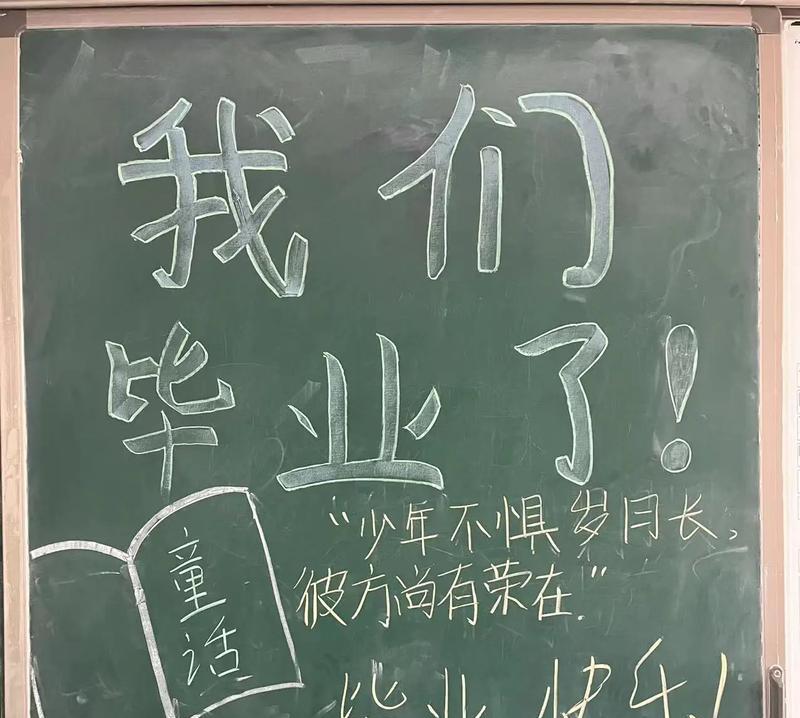 我们
毕业了！
童话
“少年不惧岁月长，
彼方尚有荣在.”
毕业快乐！